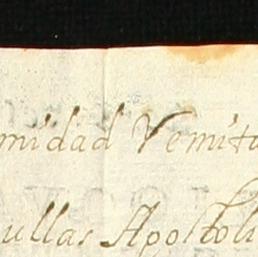 midad Vemita
ullas Apostoli